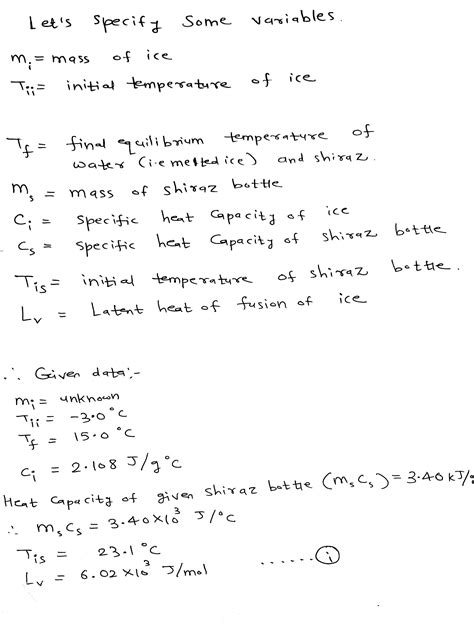 Let's specify some variables.
mi = mass of ice
Tii = initial temperature of ice
Tf = final equilibrium temperature of
water (i.e melted ice) and shiraz.
ms = mass of shiraz bottle
Ci = specific heat capacity of ice
Cs = specific heat capacity of shiraz bottle
Tis = initial temperature of shiraz bottle.
Lv = Latent heat of fusion of ice
∴ Given data:-
mi = unknown
Tii = -3.0 °C
Tf = 15.0 °C
Ci = 2.108 J/g°C
Heat capacity of given shiraz bottle (msCs) = 3.40 kJ/
∴ msCs = 3.40×10³ J/°C
Tis = 23.1 °C
Lv = 6.02×10³ J/mol ......(i)